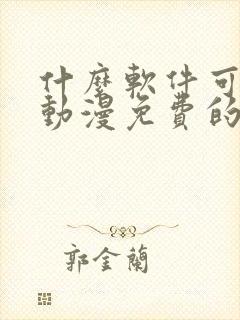 什麼軟件可
動漫免費的
郭金蘭